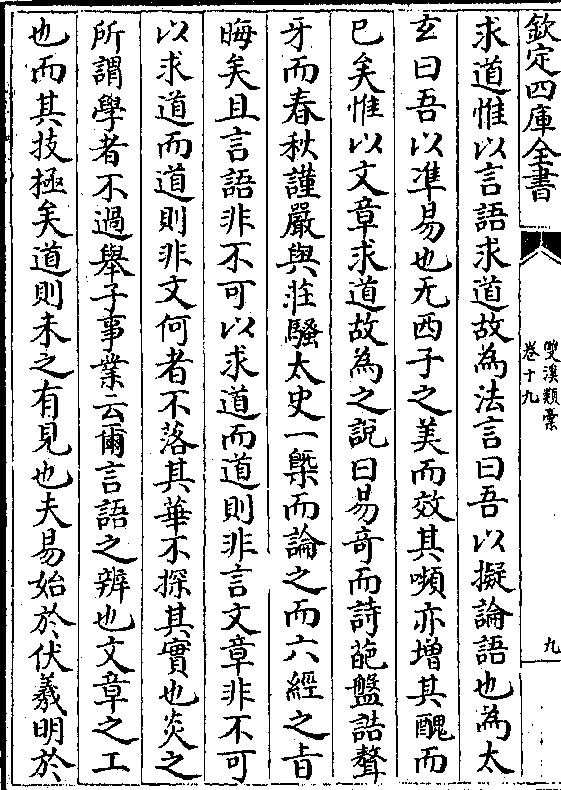 欽定四庫全書
雙溪類稾
卷十九
九
求道惟以言語求道故為法言曰吾以擬論語也為太
玄曰吾以準易也无西子之美而效其嚬亦增其醜而
巳矣惟以文章求道故為之說曰易竒而詩葩盤誥聱
牙而春秋謹嚴與莊騷太史一槩而論之而六經之㫖
晦矣且言語非不可以求道而道則非言文章非不可
以求道而道則非文何者不落其華不探其實也炎之
所謂學者不過舉子事業云爾言語之辨也文章之工
也而其技極矣道則未之有見也夫易始於伏羲明於